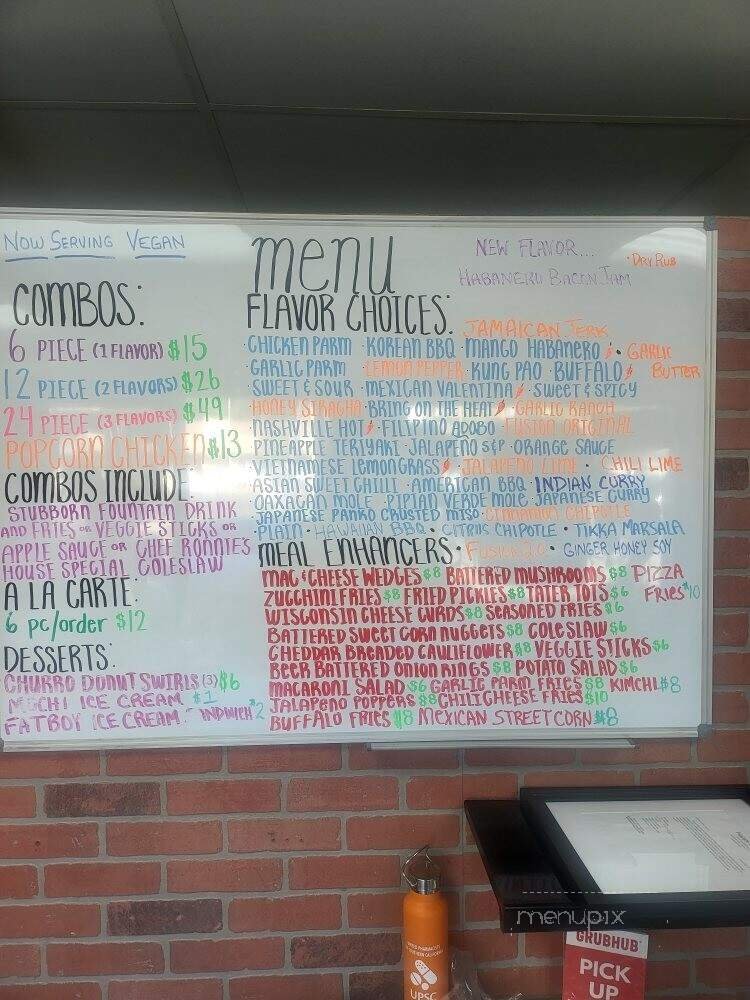 NOW SERVING VEGAN
COMBOS:
6 PIECE (1 FLAVOR) $15
12 PIECE (2 FLAVORS) $26
24 PIECE (3 FLAVORS) $49
POPCORN CHICKEN $13
COMBOS INCLUDE:
STUBBORN FOUNTAIN DRINK
AND FRIES OR VEGGIE STICKS OR
APPLE SAUCE OR CHEF RONNIE'S
HOUSE SPECIAL COLESLAW
A LA CARTE:
6 pc/order $12
DESSERTS:
CHURRO DONUT SWIRLS (3) $6
MOCHI ICE CREAM $1
FATBOY ICE CREAM $2
menu
NEW FLAVOR...
HABANERO BACON JAM
• DRY RUB
FLAVOR CHOICES:
JAMAICAN JERK
• CHICKEN PARM • KOREAN BBQ • MANGO HABANERO • GARLIC BUTTER
• GARLIC PARM • LEMON PEPPER • KUNG PAO • BUFFALO
• SWEET & SOUR • MEXICAN VALENTINA • SWEET & SPICY
• HONEY SIRACHA • BRING ON THE HEAT • GARLIC RANCH
• NASHVILLE HOT • FILIPINO ADOBO • FUSION ORIGINAL
• PINEAPPLE TERIYAKI • JALAPENO S&P • ORANGE SAUCE
• VIETNAMESE LEMONGRASS • JALAPENO LIME • CHILI LIME
• ASIAN SWEET CHILI • AMERICAN BBQ • INDIAN CURRY
• OAXACAN MOLE • PIPIAN VERDE MOLE • JAPANESE CURRY
• JAPANESE PANKO CRUSTED MISO • CINNAMON CHIPOTLE
• PLAIN • HAWAIIAN BBQ • CITRUS CHIPOTLE • TIKKA MARSALA
MEAL ENHANCERS • FUSION 2.0 • GINGER HONEY SOY
MAC & CHEESE WEDGES $8 BATTERED MUSHROOMS $8 PIZZA FRIES $10
ZUCCHINI FRIES $8 FRIED PICKLES $8 TATER TOTS $6
WISCONSIN CHEESE CURDS $8 SEASONED FRIES $6
BATTERED SWEET CORN NUGGETS $8 COLE SLAW $6
CHEDDAR BREADED CAULIFLOWER $8 VEGGIE STICKS $6
BEER BATTERED ONION RINGS $8 POTATO SALAD $6
MACARONI SALAD $6 GARLIC PARM FRIES $8 KIMCHI $8
JALAPENO POPPERS $8 CHILI CHEESE FRIES $10
BUFFALO FRIES $8 MEXICAN STREET CORN $8
menupix
UPSC
GRUBHUB
PICK
UP